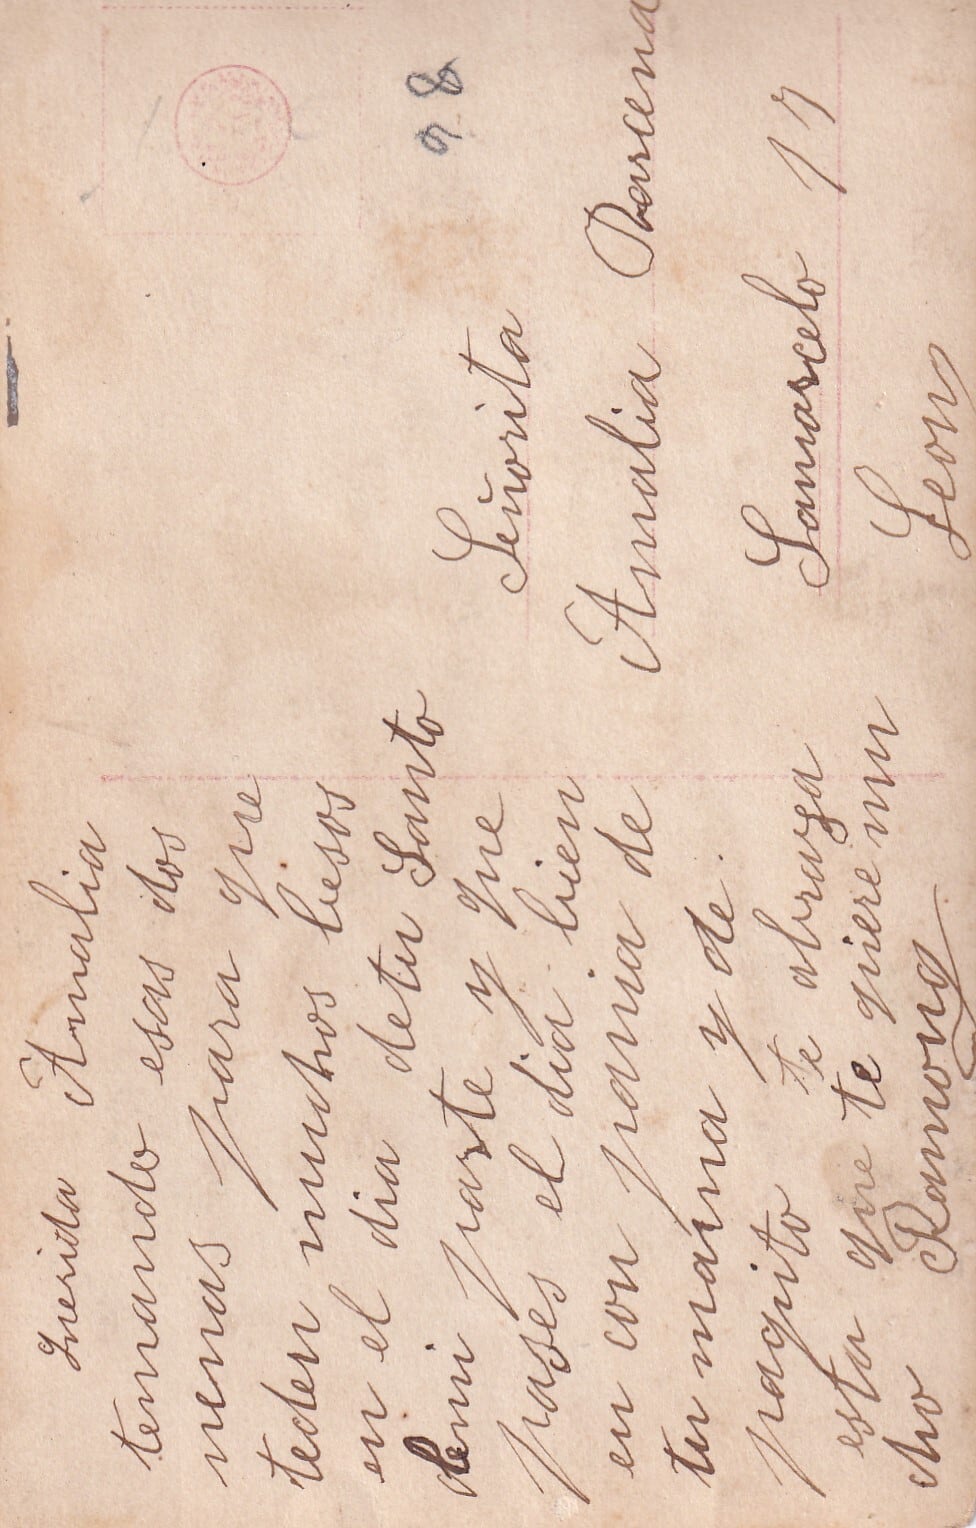 Querida Amalia
temando esas dos
nenas para que
teden muchos besos
en el dia detu Santo
demi parte y que
pases el dia bien
en con pania de
tu mama y de
papito te abraza
esta que te quiere mu
cho Ramona
98
Señorita
Amalia Barcena
Samarcelo 17
Leon